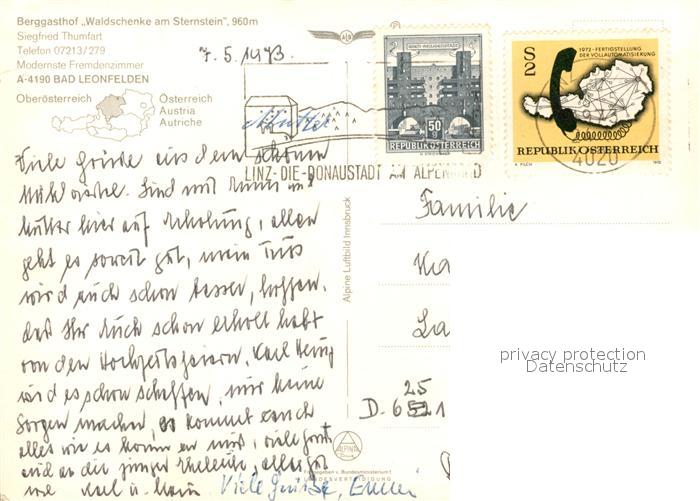 Berggasthof „Waldschenke am Sternstein", 960m
Siegfried Thumfart
Telefon 07213/279
Modernste Fremdenzimmer
A-4190 BAD LEONFELDEN
Oberösterreich
Österreich
Austria
Autriche
7. 5. 1973.
Mutter
50
REPUBLIK ÖSTERREICH
S
2
1972 - FERTIGSTELLUNG
DER VOLLAUTOMATISIERUNG
REPUBLIK ÖSTERREICH
4020
LINZ-DIE-DONAUSTADT AM ALPENRAND
Viele Grüße aus dem schönen
Mühlviertel. Sind mit
Mutter hier auf Erholung, allen
geht es soweit gut, mein Fuß
wird auch schon besser, hoffen,
daß Ihr Euch schon erholt habt
von den Hochzeitsfeiern. Karl Heinz
wird es schon schaffen, nur keine
Sorgen machen, es kommt
alles wie es kommen muß, viele
und an die jungen Eheleute, alles
Viele Grüße, Emmi
Alpine Luftbild Innsbruck
Familie
Ka
La
25
D-6521
ALPINE
privacy protection
Datenschutz